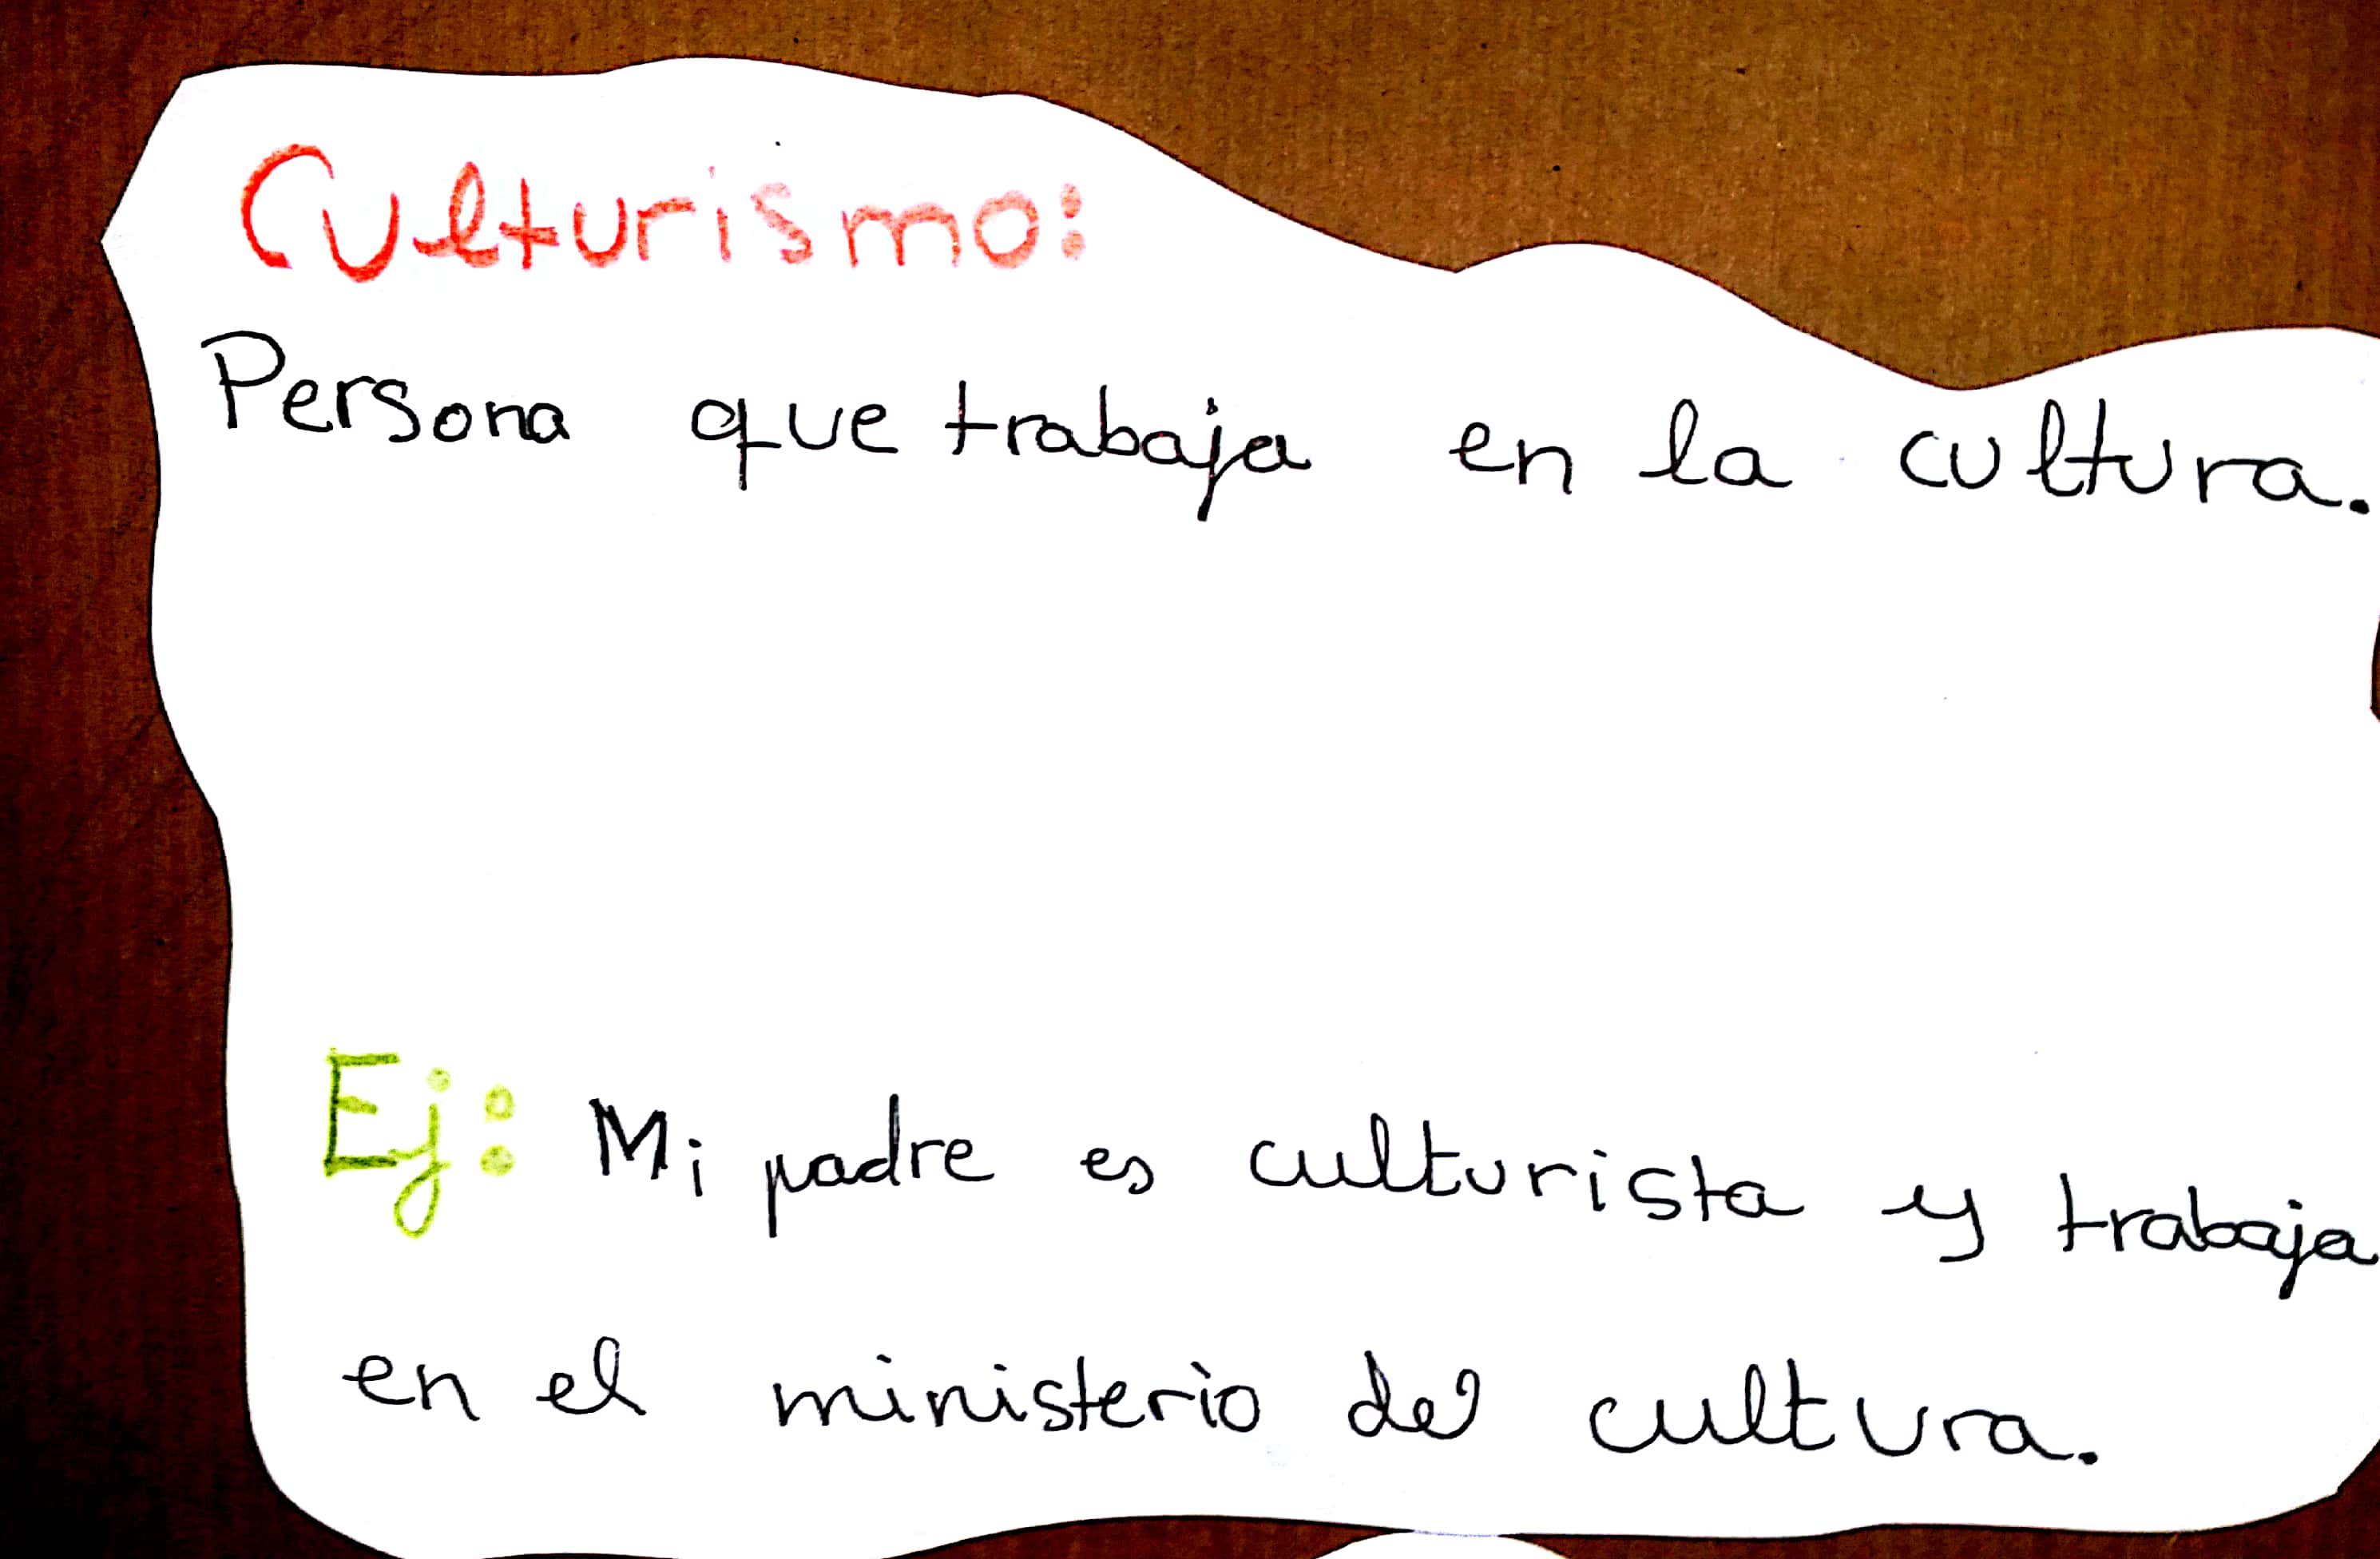 Culturismo:
Persona que trabaja en la cultura.
Ej: Mi padre es culturista y trabaja
en el ministerio de cultura.